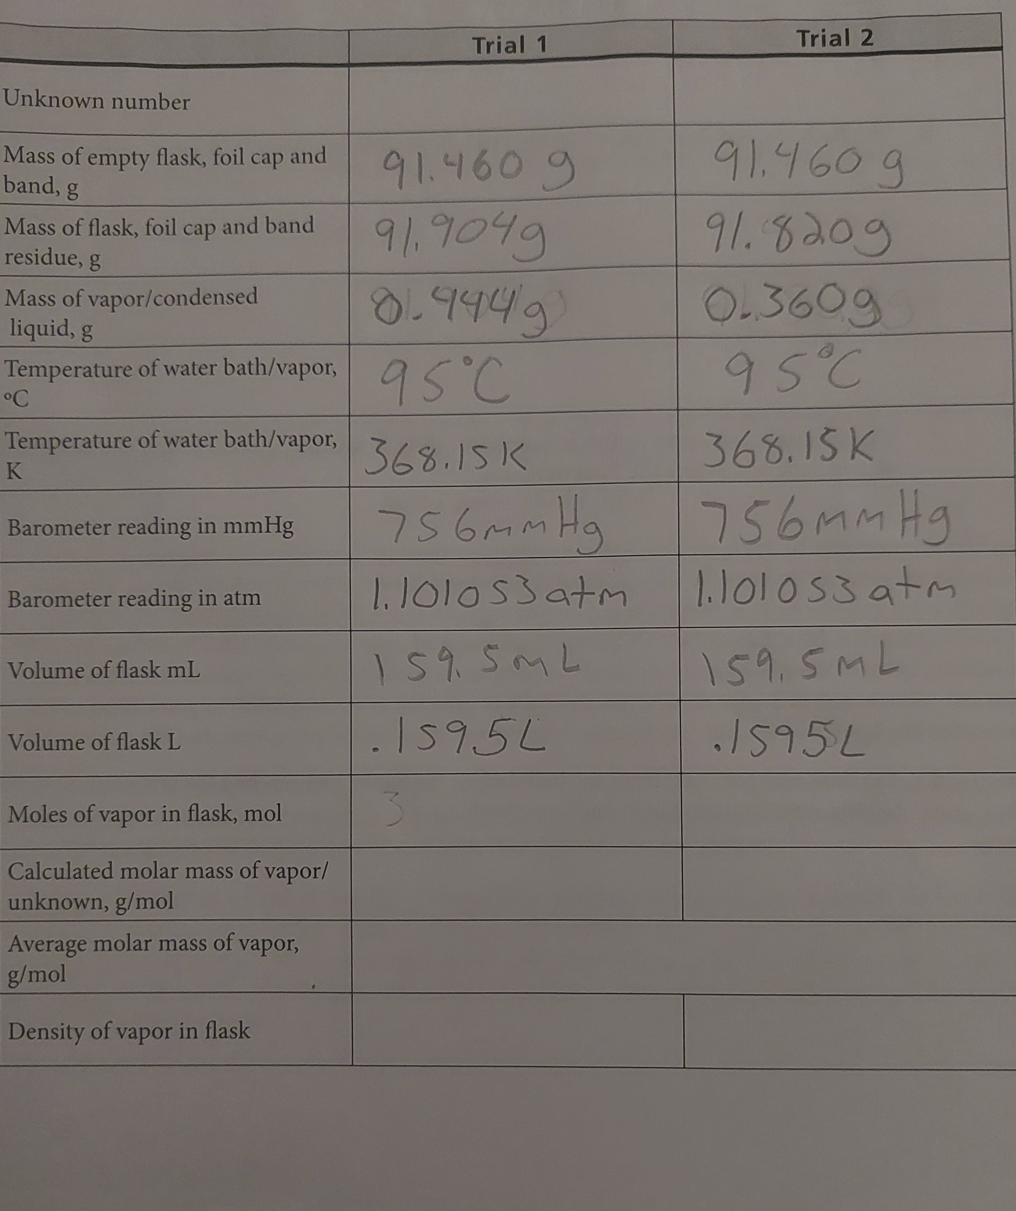 Trial 1 Trial 2
Unknown number
Mass of empty flask, foil cap and band, g 91.460 g 91.460 g
Mass of flask, foil cap and band residue, g 91.904g 91.820g
Mass of vapor/condensed liquid, g 0.444g 0.360g
Temperature of water bath/vapor, °C 95°C 95°C
Temperature of water bath/vapor, K 368.15K 368.15K
Barometer reading in mmHg 756mmHg 756mmHg
Barometer reading in atm 1.101053atm 1.101053atm
Volume of flask mL 159.5mL 159.5mL
Volume of flask L .1595L .1595L
Moles of vapor in flask, mol 3
Calculated molar mass of vapor/ unknown, g/mol
Average molar mass of vapor, g/mol
Density of vapor in flask